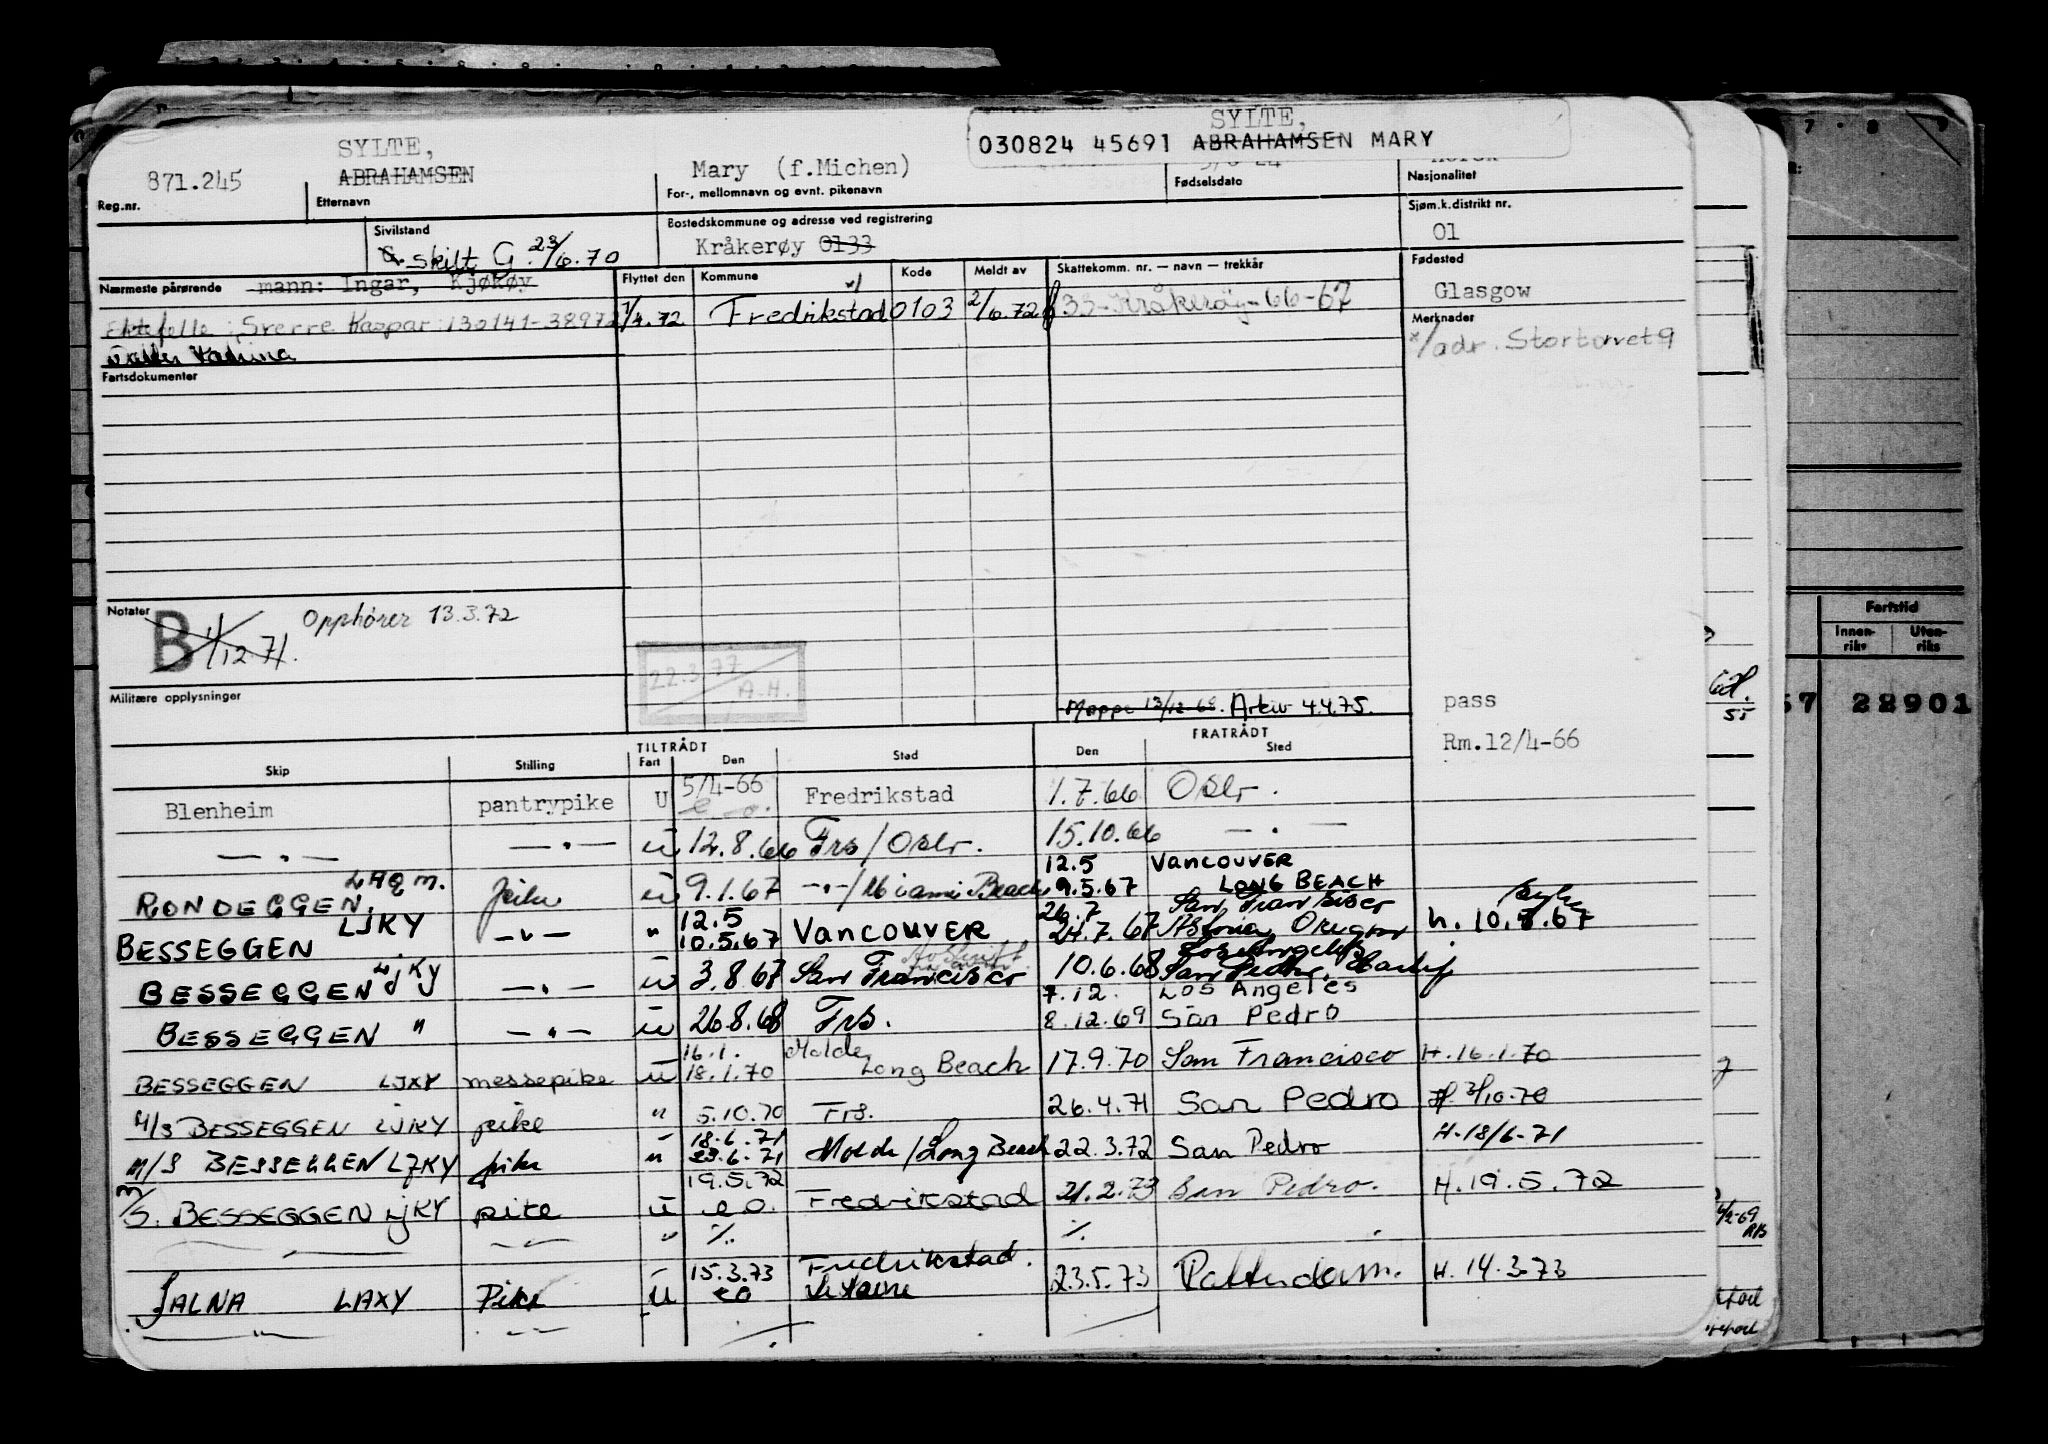 SYLTE,
030824 45691 ABRAHAMSEN MARY
SYLTE,
871.245 ABRAHAMSEN Mary (f.Michen)
Reg.nr. Etternavn For-, mellomnavn og evnt. pikenavn Fødselsdato Nasjonalitet
Sivilstand Bostedskommune og adresse ved registrering Sjøm.k.distrikt nr.
skilt G. 23/6.70 Kråkerøy 0133 01
Nærmeste pårørende mann: Ingar, Kjøkøy Flyttet den Kommune Kode Meldt av Skattekomm. nr. — navn — trekkår Fødested
Glasgow
Ektefelle: Sverre Kaspar: 130141-38972 1/4.72 Fredrikstad x/ 0103 2/6.72 33-Kråkerøy-66-67
Merknader
x/adr. Stortorvet 9
Fartsdokumenter
Notater
B 1/12.71. Opphører 13.3.72
22.3.77
A.H.
Militære opplysninger
Mappe 13/12-68. Arkiv 4.4.75.
pass
Rm.12/4-66
TILTRÅDT FRATRÅDT
Skip Stilling Fart Den Sted Den Sted
Blenheim pantrypike U 5/4-66 e.o. Fredrikstad 1.7.66 Oslo.
— " — — " — u 12.8.66 Frs/Oslo. 15.10.66 — " —
RONDEGGEN LAQM. pike u 9.1.67 — " —/Miami Beach 12.5 9.5.67 VANCOUVER LONG BEACH
BESSEGGEN LJKY — " — " 12.5 10.5.67 VANCOUVER 26.7 24.7.67 San Francisco Astoria, Oregon h. 10.8.67
BESSEGGEN LJKY — " — u 3.8.67 San Francisco 10.6.68 Los Angeles San Pedro,
BESSEGGEN " — " — u 26.8.68 Frs. 7.12. 8.12.69 Los Angeles San Pedro
BESSEGGEN LJXY messepike u 16.1. 18.1.70 Molde Long Beach 17.9.70 San Francisco H.16.1.70
M/S BESSEGGEN LJKY pike " 5.10.70 Frs. 26.4.71 San Pedro H 2/10.70
M/S BESSEGGEN LJKY pike " 18.6.71 23.6.71 Molde/Long Beach 22.3.72 San Pedro H.18/6.71
M/S. BESSEGGEN LJKY pike u 19.5.72 e.o. Fredrikstad 21.2.73 San Pedro. H.19.5.72
— " — — " — " %. %.
JALNA LAXY Pike u 15.3.73 eo Fredrikstad. Le Havre 23.5.73 Rotterdam. H.14.3.73
— " — — " —
Fartstid
Innenriks Utenriks
57 22901